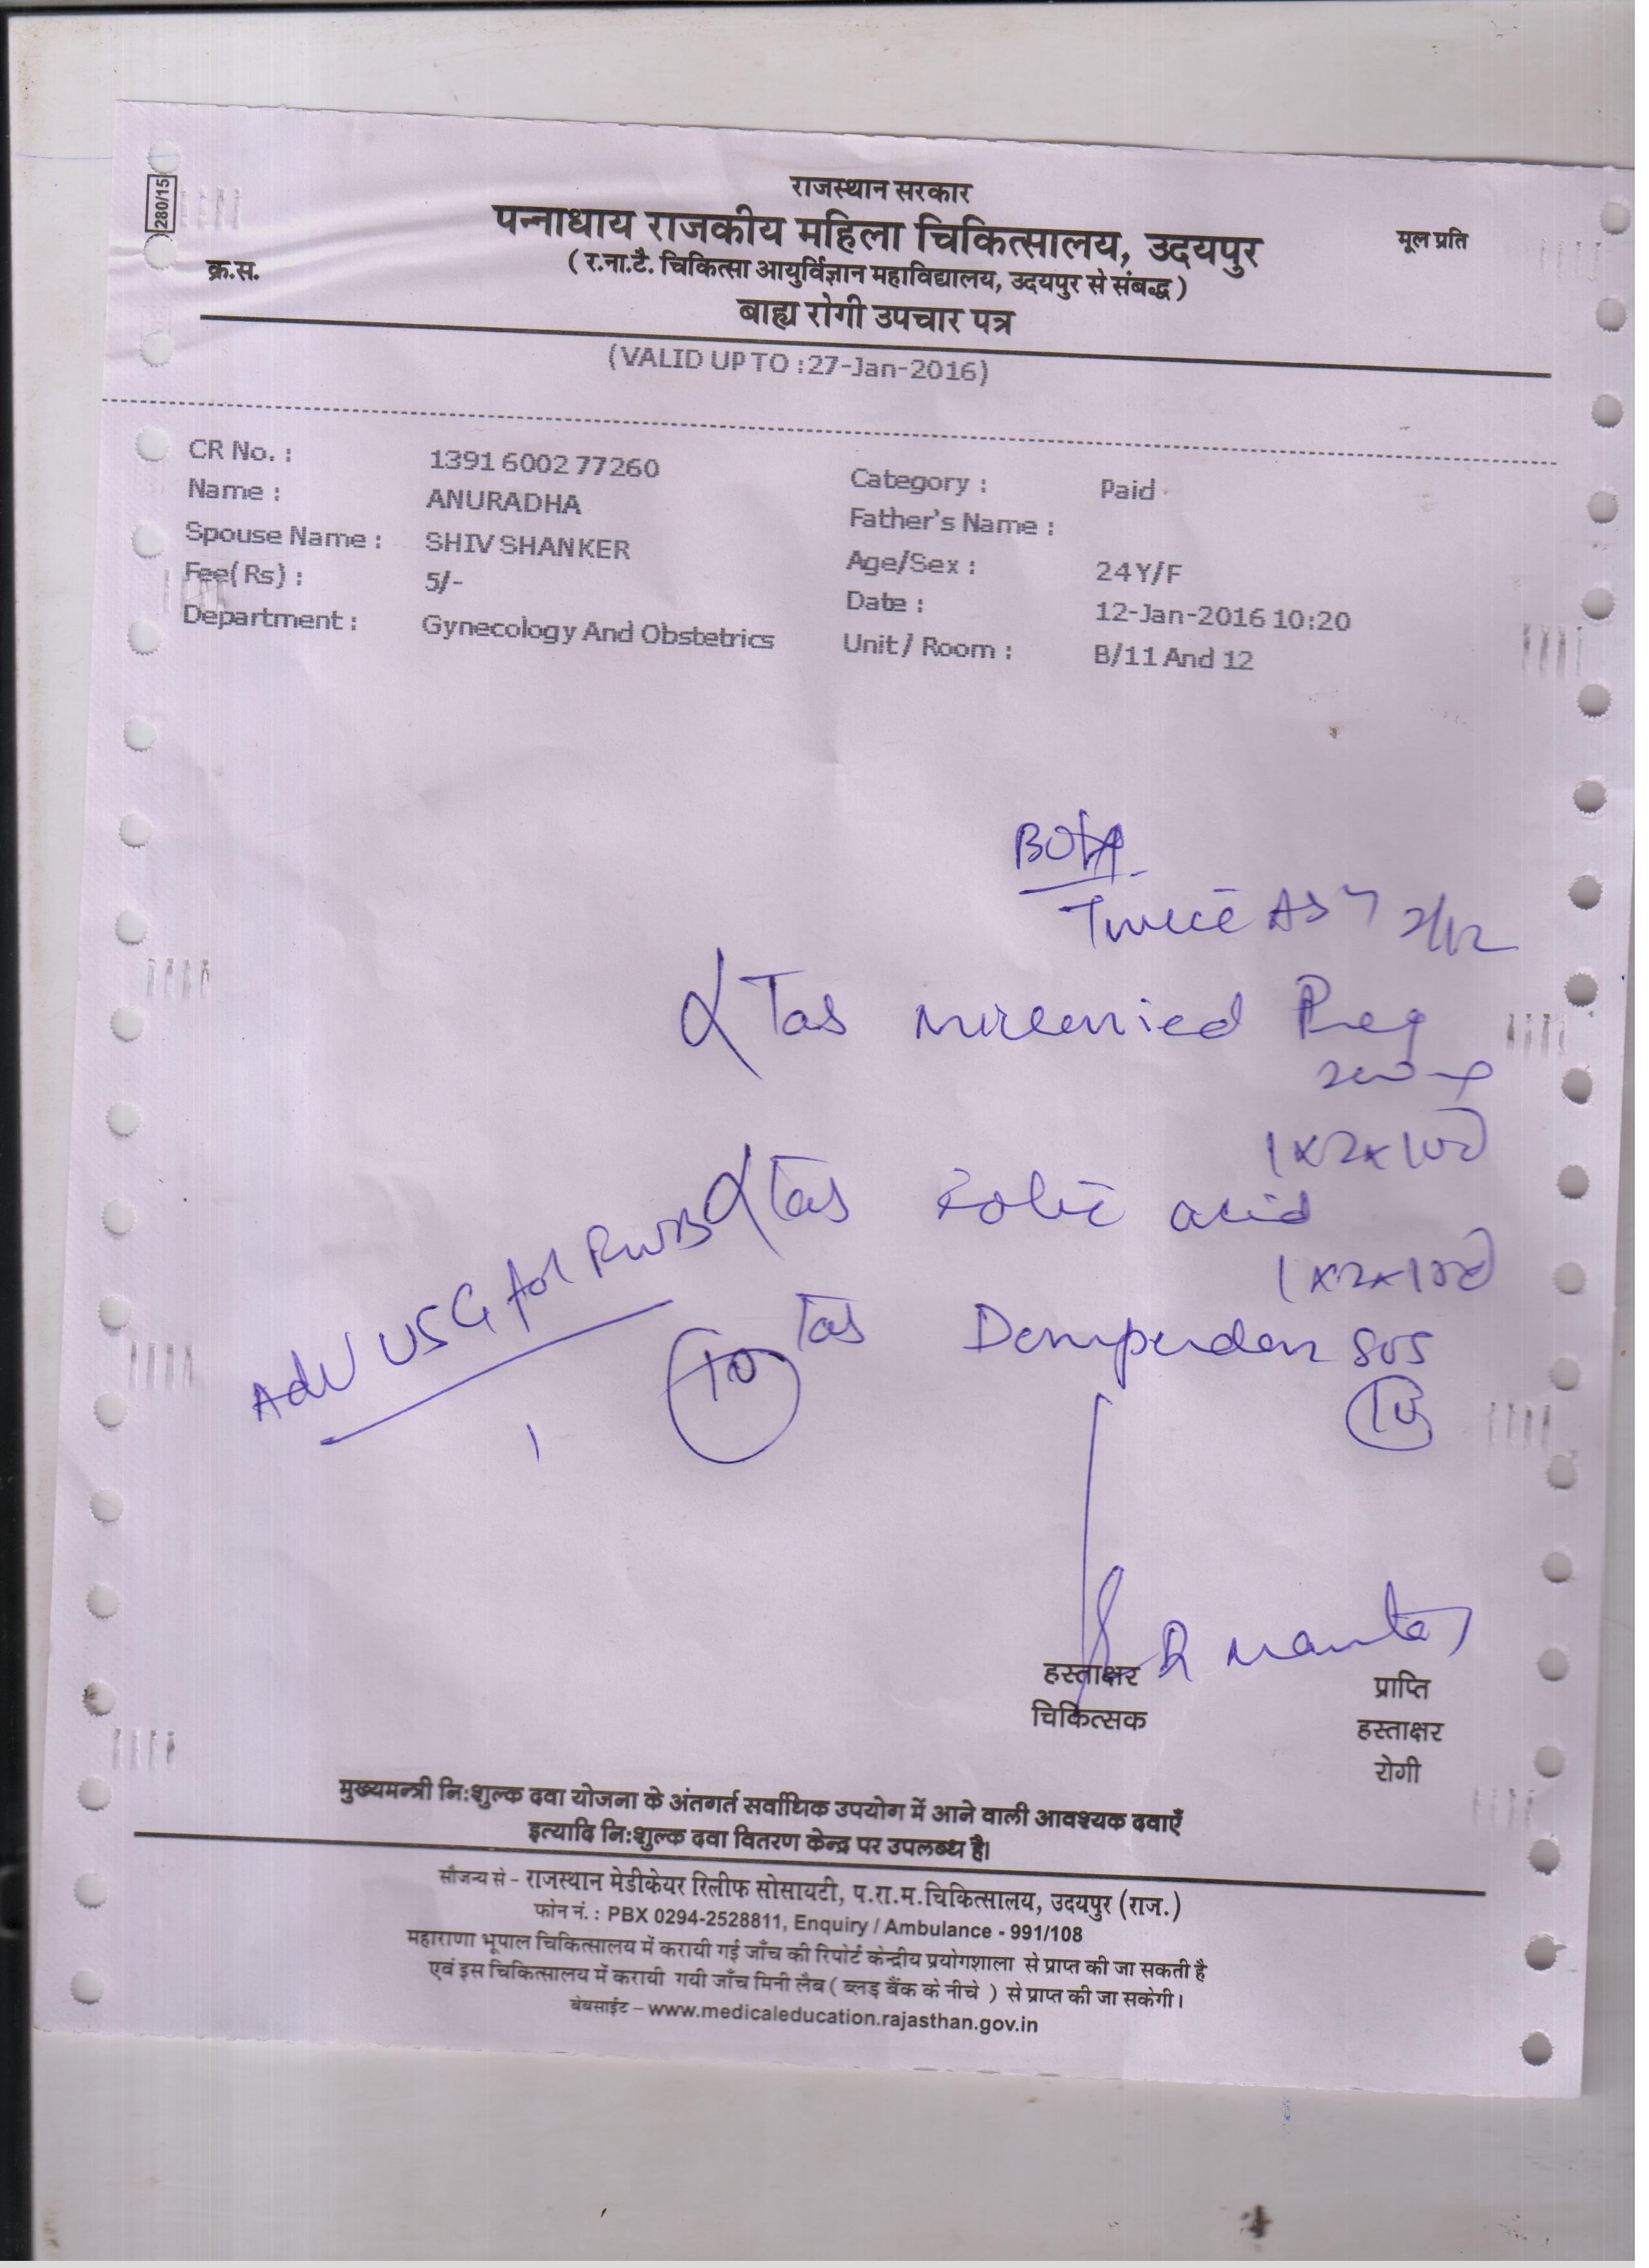 280/15
राजस्थान सरकार
पन्नाधाय राजकीय महिला चिकित्सालय, उदयपुर
मूल प्रति
क्र.स.
( र.ना.टै. चिकित्सा आयुर्विज्ञान महाविद्यालय, उदयपुर से संबद्ध )
बाह्य रोगी उपचार पत्र
(VALID UP TO :27-Jan-2016)
CR No. : 1391 6002 77260 Category : Paid
Name : ANURADHA Father's Name :
Spouse Name : SHIV SHANKER Age/Sex : 24Y/F
Fee(Rs) : 5/- Date : 12-Jan-2016 10:20
Department : Gynecology And Obstetrics Unit / Room : B/11 And 12
Tab Preg
1x2x10d
Tab Folic acid
1x2x10d
Adv USG for
Tab SOS
10
10
हस्ताक्षर
चिकित्सक
प्राप्ति
हस्ताक्षर
रोगी
मुख्यमन्त्री निःशुल्क दवा योजना के अंतगर्त सर्वाधिक उपयोग में आने वाली आवश्यक दवाएँ
इत्यादि निःशुल्क दवा वितरण केन्द्र पर उपलब्ध है।
सौजन्य से – राजस्थान मेडीकेयर रिलीफ सोसायटी, प.रा.म.चिकित्सालय, उदयपुर (राज.)
फोन नं. : PBX 0294-2528811, Enquiry / Ambulance - 991/108
महाराणा भूपाल चिकित्सालय में करायी गई जाँच की रिपोर्ट केन्द्रीय प्रयोगशाला से प्राप्त की जा सकती है
एवं इस चिकित्सालय में करायी गयी जाँच मिनी लैब ( ब्लड बैंक के नीचे ) से प्राप्त की जा सकेगी।
बेबसाईट – www.medicaleducation.rajasthan.gov.in